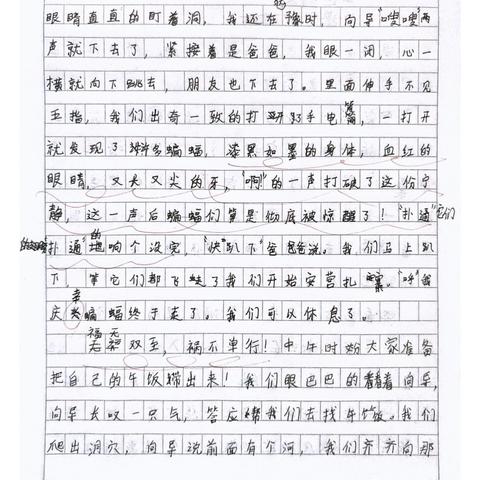 眼睛直直的盯着洞，我还在犹豫时，向导"嗖嗖"两
声就下去了，紧接着是爸爸，我眼一闭，心一
横就向下跳去，朋友也下去了。里面伸手不见
五指，我们出奇一致的打开手电筒，一打开
就发现了许多蝙蝠，漆黑如墨的身体，血红的
眼睛，又长又尖的牙，"啊"的一声打破了这份宁
静，这一声后蝙蝠们算是彻底被惊醒了！"扑通
扑通"的响个没完，"快趴下"爸爸说。我们马上趴
下，等它们都飞走了我们开始安营扎寨。"呼"我
庆幸蝙蝠终于走了。我们可以休息了。
福无双至，祸不单行！中午时分大家准备
把自己的午饭拿出来！我们眼巴巴的看着向导，
向导长叹一口气，答应帮我们去找午饭。我们
爬出洞穴，向导说前面有个河，我们齐齐向那